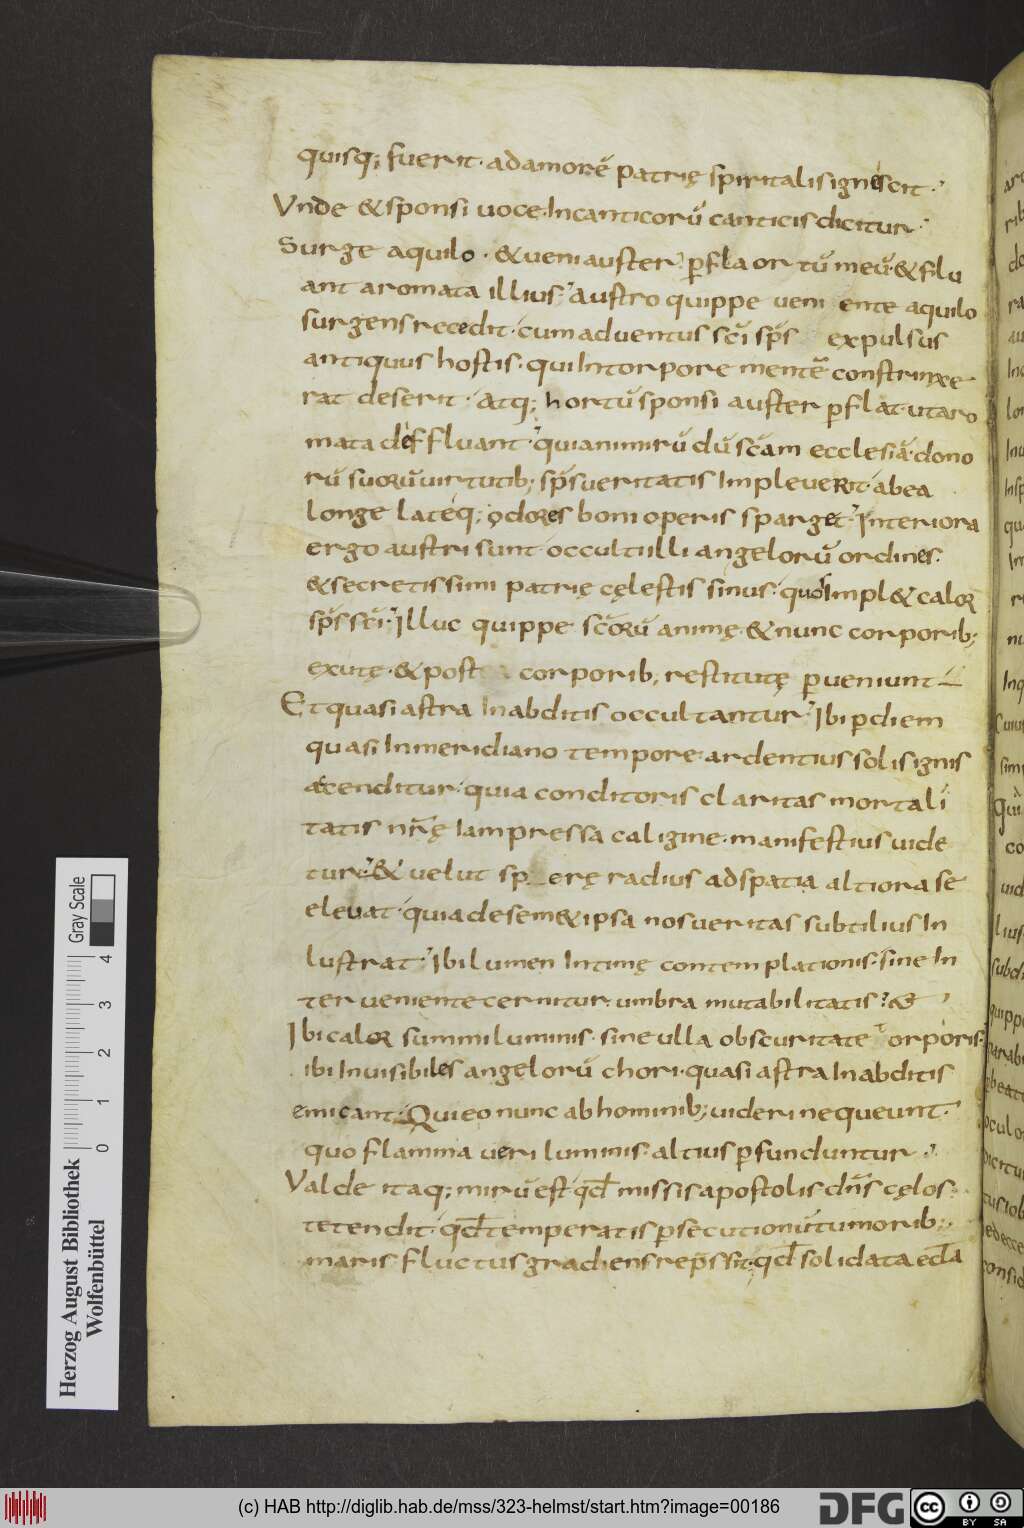 quisq; fuerit· adamorē patrię spiritalis ignescit·
Vnde &sponsi uoce· Incanticorū canticis dicitur·
Surge aquilo· &ueni auster· ꝑfla ortū meū· &flu
ant aromata illius; Austro quippe ueniente aquilo
surgens recedit· cum aduentus sc̄i sp̄s expulsus
antiquus hostis· qui Intorpore mentē constrinxe
rat deserit· Atq; hortū sponsi auster ꝑflat· ut aro
mata deffluant· quia nimirū dū sc̄am ecclesiā· dono
rū suorū uirtutib; sp̄s ueritatis Impleuerit· abea
longe lateq; odores boni operis sparget· Interiora
ergo austri sunt occulti illi angelorū ordines·
&secretissimi patrię cęlestis sinus· quos Impl& calor
sp̄s sc̄i· Illuc quippe sc̄orū animę &nunc corporib;
exutę· &post corporib; restitutę ꝑueniunt
Et quasi astra Inabditis occultantur· Ibi ꝑ diem
quasi Inmeridiano tempore· ardentius solis ignis
accenditur· quia conditoris claritas mortali
tatis nr̄ę Iam pressa caligine· manifestius uide
tur· &uelut sp erę radius ad spatia altiora se
eleuat· quia de sem&ipsa nos ueritas subtilius In
lustrat· Ibi lumen Intimę contemplationis· sine In
terueniente cernitur· umbra mutabilitatis· &
Ibi calor summi luminis· sine ulla obscuritate corporis·
ibi Inuisibiles angelorū chori· quasi astra Inabditis
emicant· Qui eo nunc ab hominib; uideri nequeunt·
quo flamma ueri luminis· altius ꝑfunduntur·
Valde itaq; mirū est qd̄ missis apostolis dn̄s cęlos·
tetendit· qd̄ temperatis ꝑsecutionū tumorib;·
maris fluctus gradiens repssit· qd̄ solidata
Herzog August Bibliothek
Wolfenbüttel
Gray Scale
0 1 2 3 4
(c) HAB http://diglib.hab.de/mss/323-helmst/start.htm?image=00186
DFG
cc BY SA